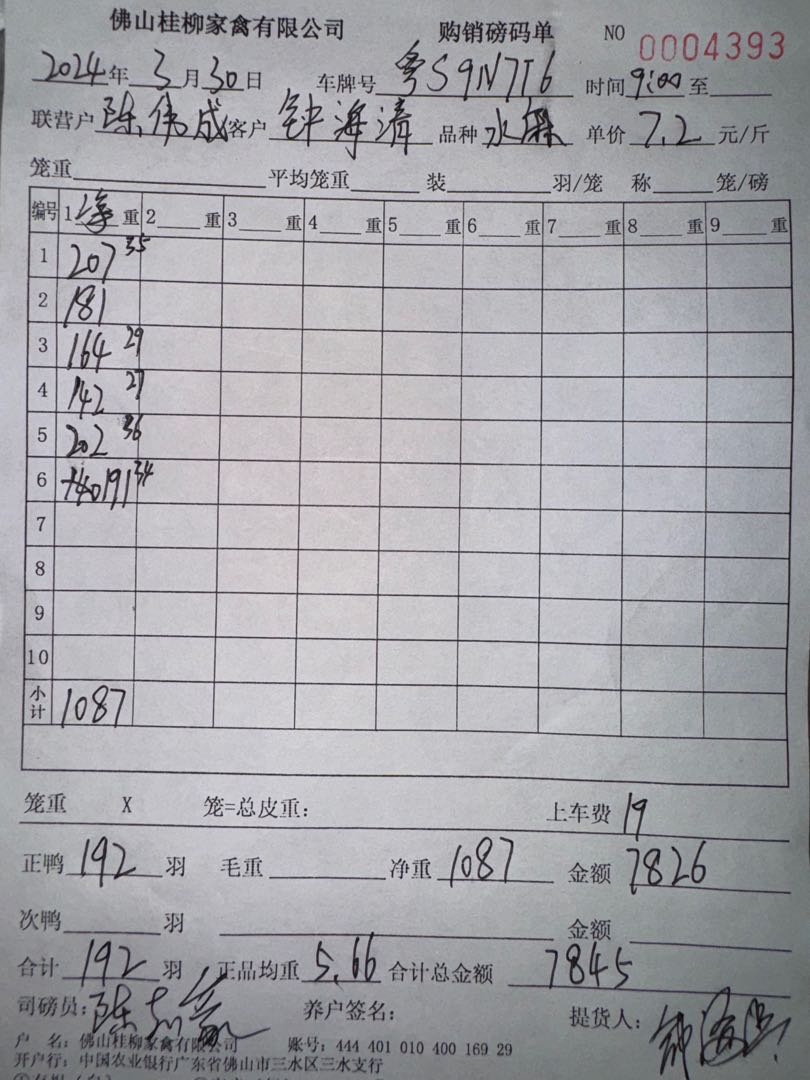 佛山桂柳家禽有限公司 购销磅码单 NO 0004393
2024年3月30日 车牌号 粤S9N7T6 时间9:00至
联营户 陈伟成 客户 钟海清 品种 水 单价 7.2 元/斤
笼重 平均笼重 装 羽/笼 称 笼/磅
编号 1 净 重 2 重 3 重 4 重 5 重 6 重 7 重 8 重 9 重
1 207 35
2 181
3 164 29
4 142 27
5 202 36
6 191 34
7
8
9
10
小计 1087
笼重 X 笼=总皮重: 上车费 19
正鸭 192 羽 毛重 净重 1087 金额 7826
次鸭 羽 金额
合计 192 羽 正品均重 5.66 合计总金额 7845
司磅员: 陈 养户签名: 提货人: 钟海清
户 名: 佛山桂柳家禽有限公司 账号: 444 401 010 400 169 29
开户行: 中国农业银行广东省佛山市三水区三水支行